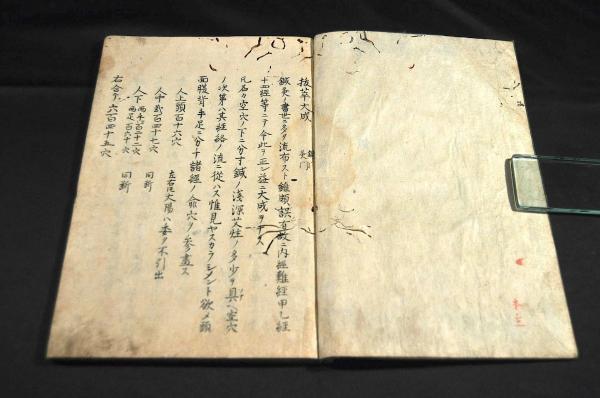 抜萃大成
鍼灸ノ書世ニ多ク流布スト雖頗誤有故ニ内經難經甲乙經
十四經等ニテ今此ヲ正シ益ニ大成ヲナス
凡名カ空穴ノ下ニ分寸鍼ノ淺深艾炷ノ多少ヲ具ヘ空穴
ノ次第ハ其經絡ノ流ニ從ハス惟見ヤスカラシメント欲メ頭
面腹背手足ニ分チ諸經ノ兪穴ヲ參盡ス
人上頭百十六穴
左右太陽ハ委ク不引出
人中 百四十七穴
同斷
人下 両手百二十二穴
両足百六十穴
同斷
右合テ六百四十五穴